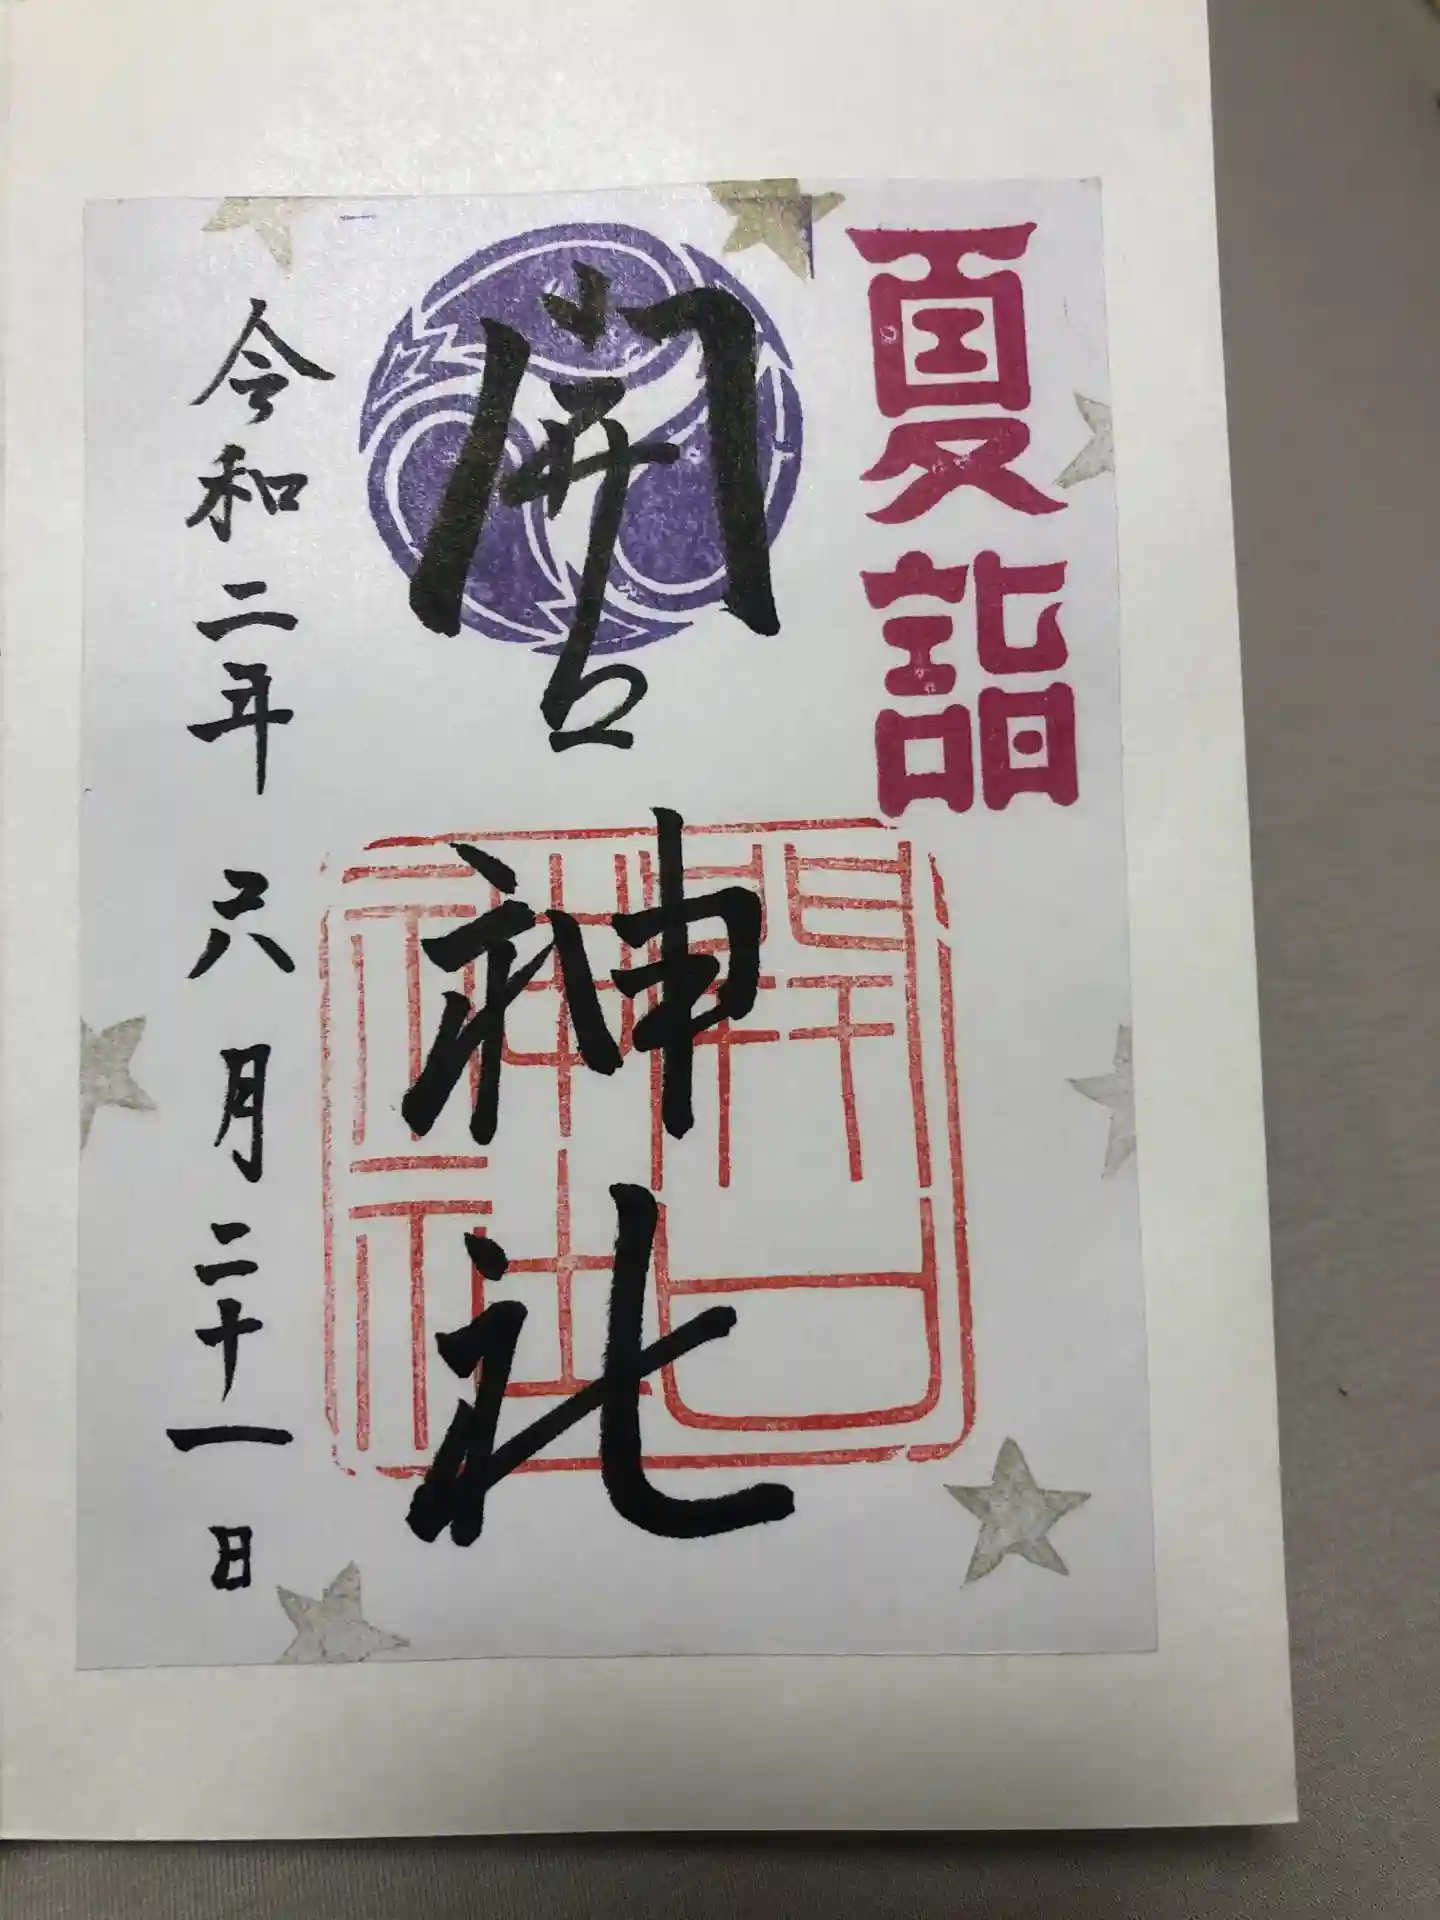 夏詣
開口神社
開口神社
令和二年六月二十一日